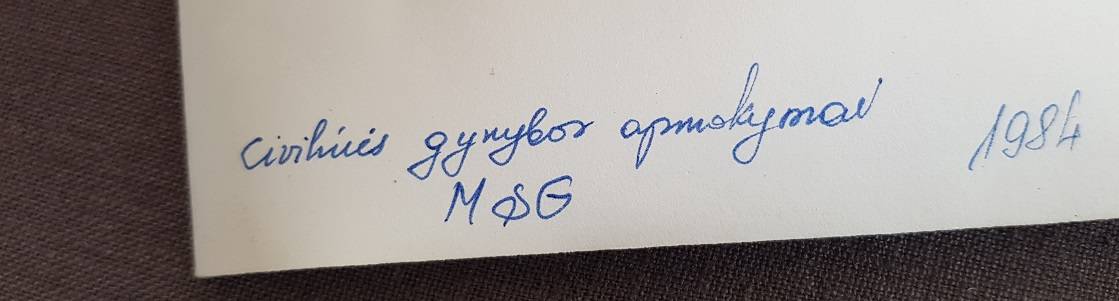 Civilinės gynybos apmokymai 1984
MSG